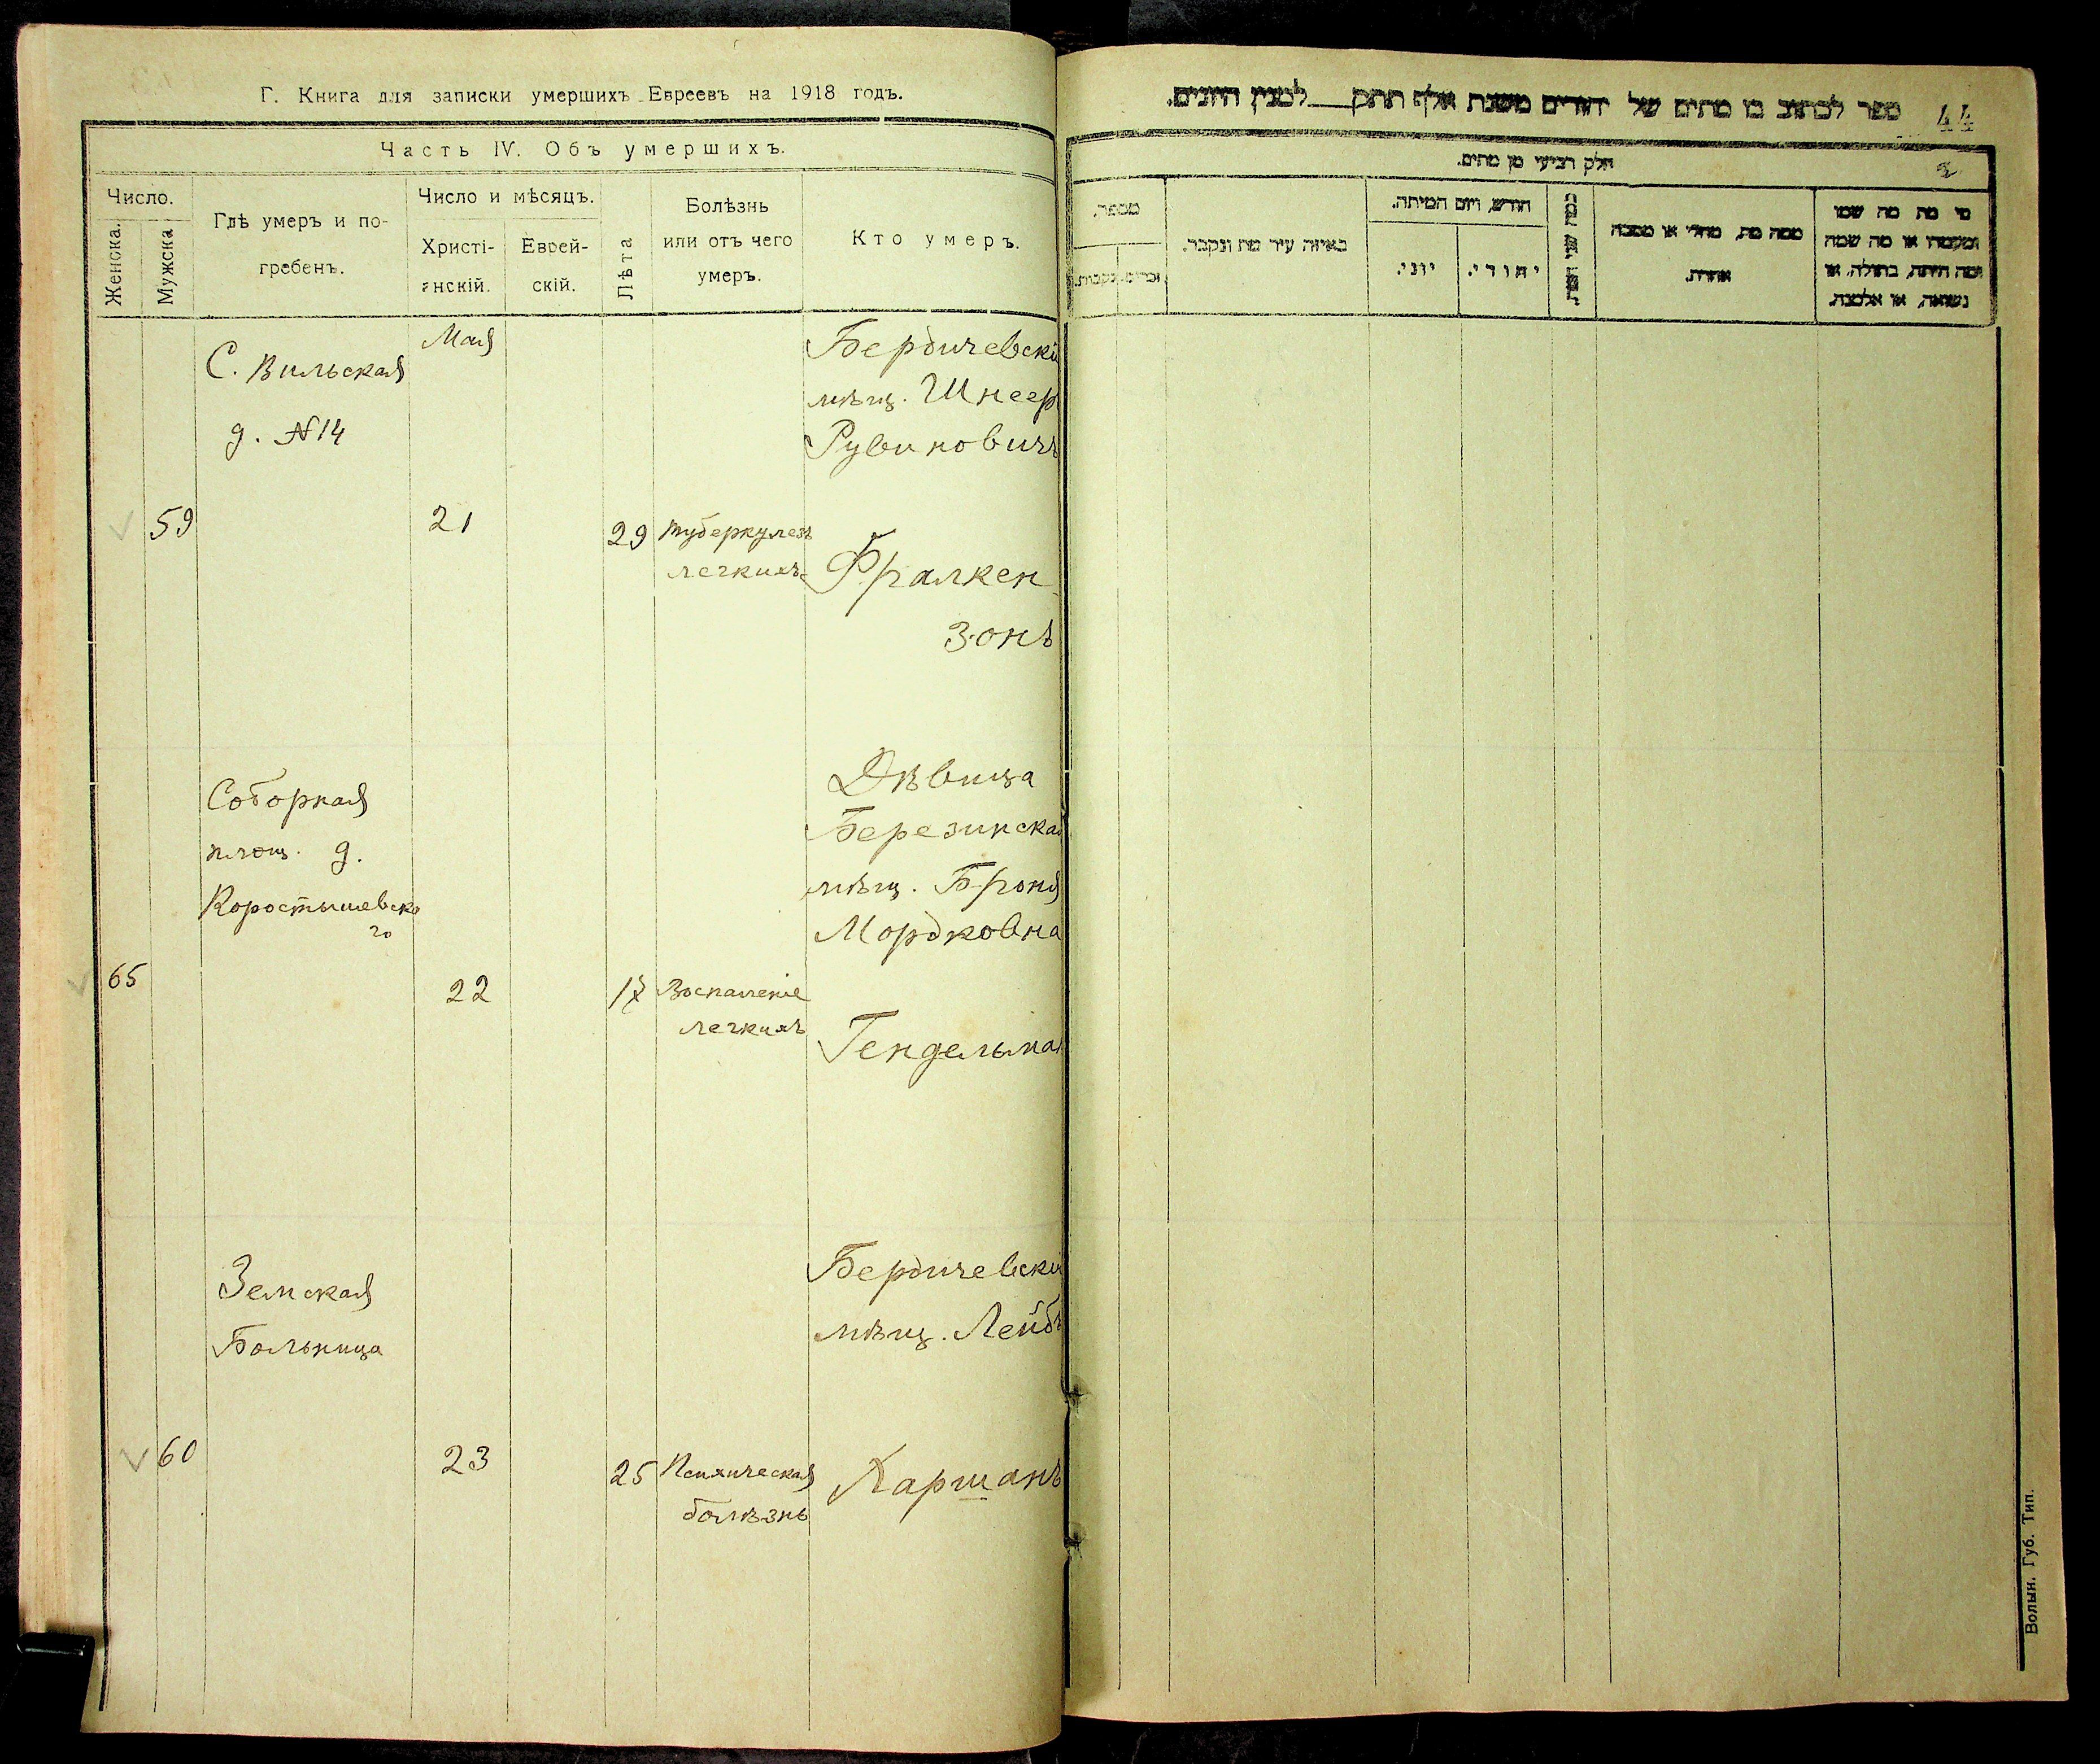 Г. Книга для записки умершихъ Евреевъ на 1918 годъ.
Часть IV. Объ умершихъ.
Число.
Женска.
Мужска
Гдѣ умеръ и по-
гребенъ.
Число и мѣсяцъ.
Христі-
анскій.
Еврей-
скій.
Лѣта
Болѣзнь
или отъ чего
умеръ.
Кто умеръ.
59
С. Вильская
д. №14
Мая
21
29
туберкулезъ
легкихъ
Бердичевскій
мѣщ. Шнеер
Рувиновичъ
Фралкен
зонъ
65
Соборная
площ. д.
Коростышевско
го
22
17
Воспаленіе
легкихъ
Дѣвица
Березинская
мѣщ. Броня
Мордковна
Гендельман
60
Земская
Больница
23
25
Психическая
болѣзнь
Бердичевскій
мѣщ. Лейбъ
Харшанъ
44
ספר לכתוב בו מתים של יהודים משנת אלף תתק למנין היונים.
חלק רביעי מן מתים.
מי מת מה שמו
ומעמדו או מה שמה
ומה היתה, בתולה, או
נשואה, או אלמנה.
ממה מת, מחלי או מסבה
אחרת.
כמה שני המת
חודש, ויום המיתה.
יהודי.
יוני.
באיזה עיר מת ונקבר.
מספר.
זכרים.
נקבות.
Волын. Губ. Тип.